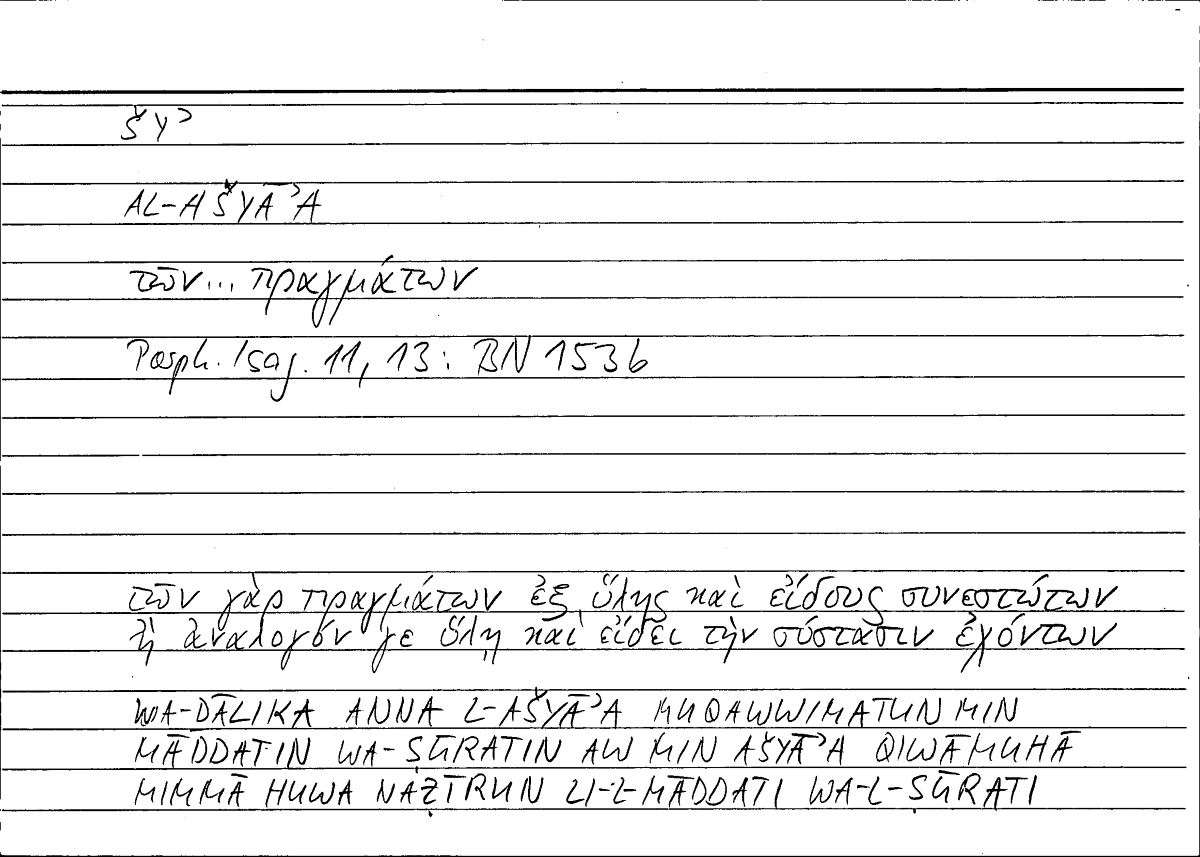 ŠYʾ
AL-AŠYĀʾA
τῶν... πραγμάτων
Porph. Isag. 11, 13: BN 153b
τῶν γὰρ πραγμάτων ἐξ ὕλης καὶ εἴδους συνεστώτων
ἢ ἀναλογόν γε ὕλῃ καὶ εἴδει τὴν σύστασιν ἐχόντων
WA-DĀLIKA ANNA L-AŠYĀʾA MUQAWWIMATUN MIN
MĀDDATIN WA-ṢŪRATIN AW MIN AŠYĀʾA QIWĀMUHĀ
MIMMĀ HUWA NAẒĪRUN LI-L-MĀDDATI WA-L-ṢŪRATI